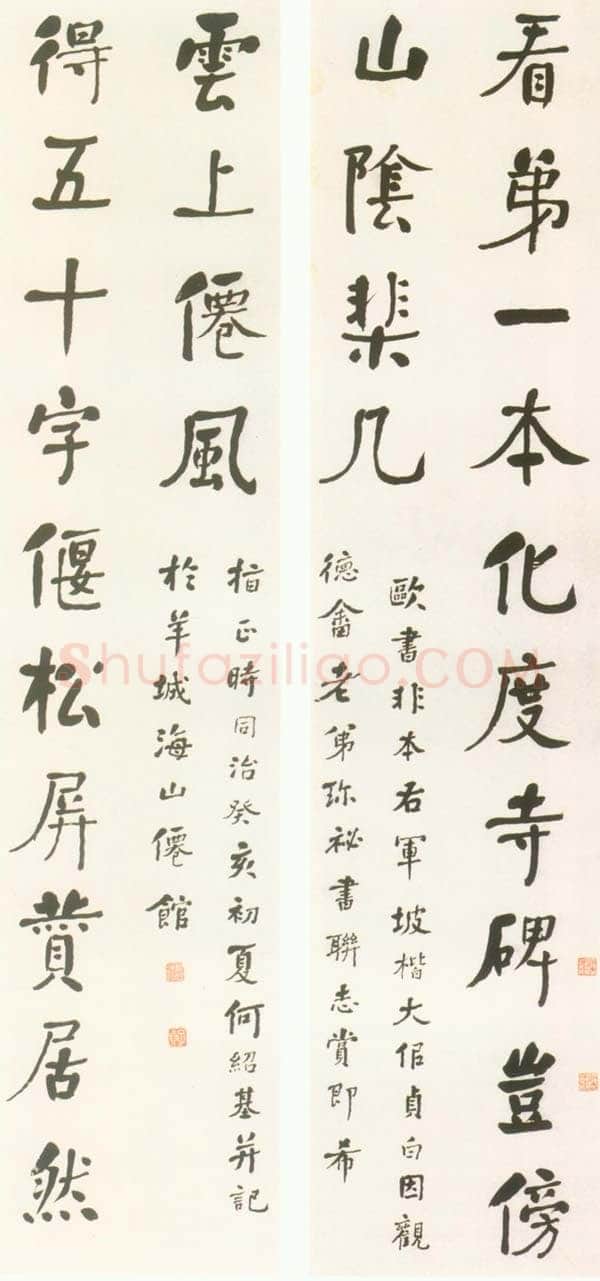 看弟一本化度寺碑豈傍
山陰棐几
歐書非本右軍坡楷大佀貞白因觀
德畬老弟珎祕書聯志賞即希
得五十字偃松屏贊居然
雲上僊風
指正時同治癸亥初夏何紹基并記
於羊城海山僊館
Shufaziliao.COM